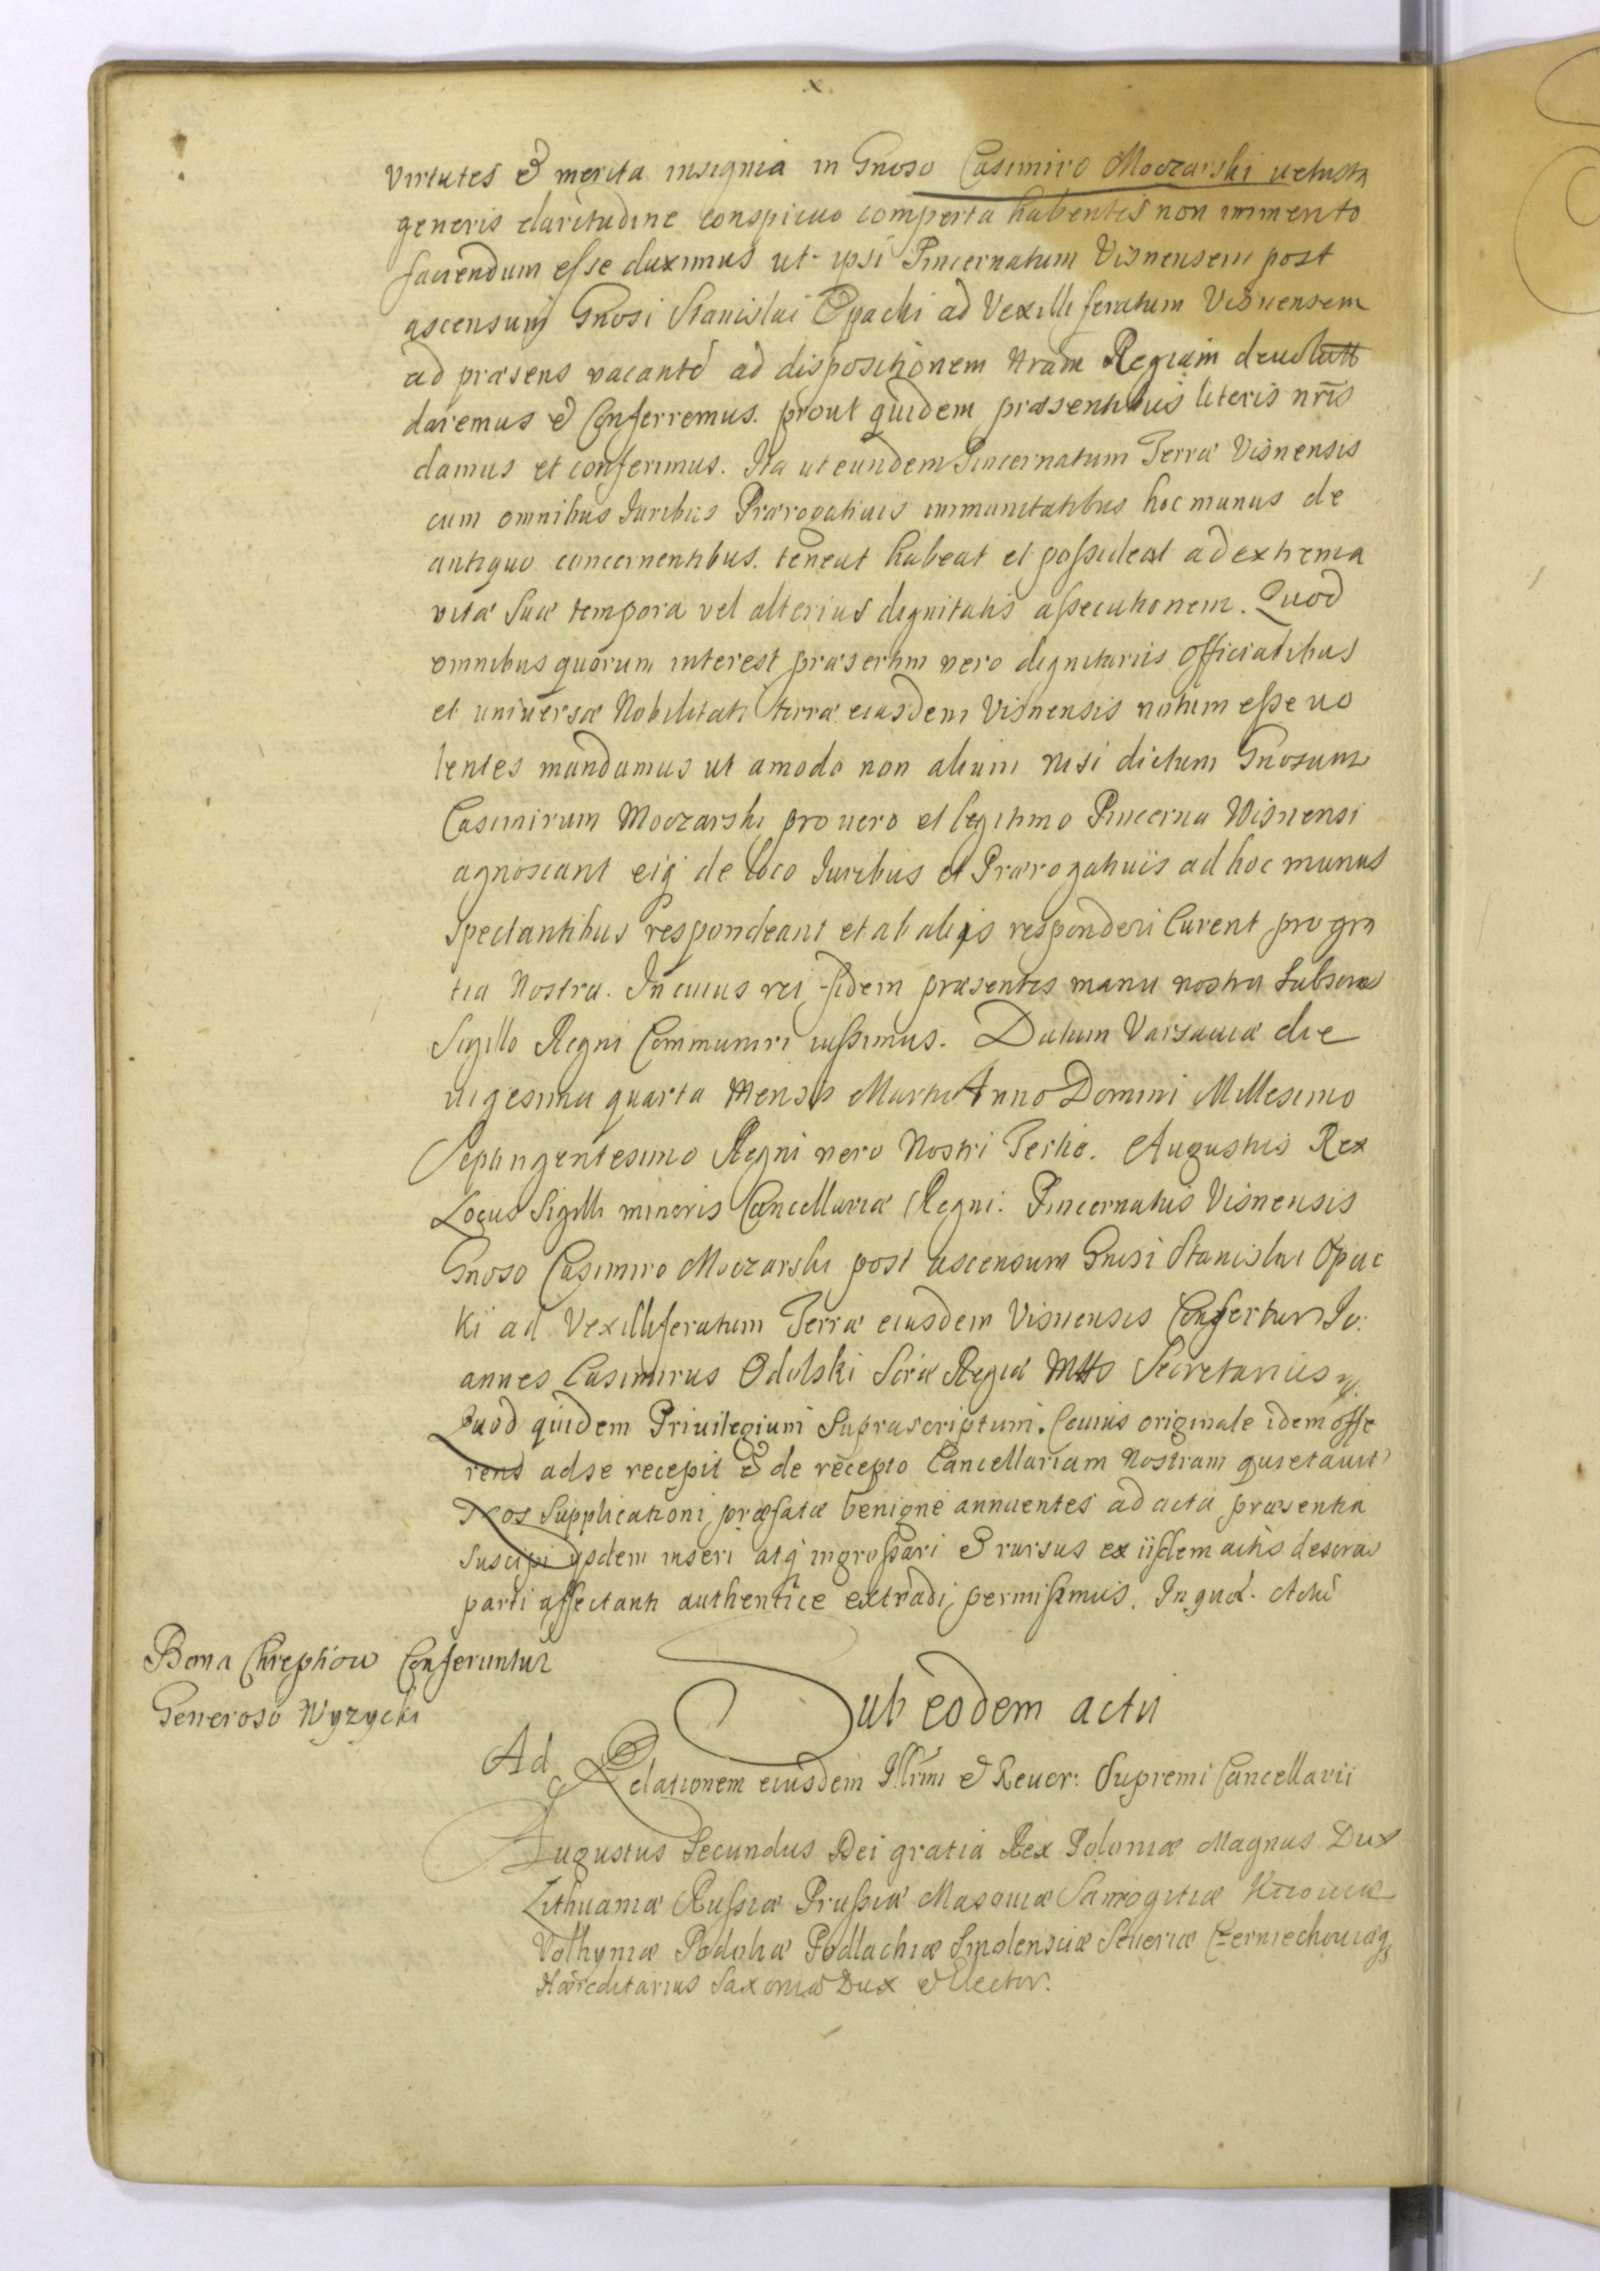 virtutes & merita insignia in Gnoso Casimiro Moczarski vetusta
generis claritudine conspicuo comperta habentes non immerito
faciendum esse duximus ut ipsi Pincernatum Visnensem post
ascensum Gnosi Stanislai Opacki ad Vexilliferatum Visnensem
ad præsens vacantē ad dispositionem Nram Regiam devolutū
daremus & Conferremus. prout quidem præsentibus literis nr̃is
damus et conferimus. Ita ut eundem Pincernatum Terræ Visnensis
cum omnibus Juribus Prærogativis immunitatibus hoc munus de
antiquo concernentibus. teneat habeat et possideat ad extrema
vitæ suæ tempora vel alterius dignitatis assecutionem. Quod
omnibus quorum interest præsertim vero dignitariis Officialibus
et universæ Nobilitati terræ eiusdem Visnensis notum esse vo
lentes mandamus ut amodo non alium nisi dictum Gnosum
Casimirum Moczarski pro vero et legitimo Pincerna Visnensi
agnoscant eiq de loco Juribus et Prærogativis ad hoc munus
spectantibus respondeant et ab aliis responderi Curent pro gra
tia Nostra. In cuius rei fidem præsentes manu nostra Subscrae
Sigillo Regni Communiri iussimus. Datum Varsaviæ die
vigesima quarta Mensis Martii Anno Domini Millesimo
Septingentesimo Regni vero Nostri Tertio. Augustus Rex
Locus Sigilli minoris Cancellariæ Regni. Pincernatus Visnensis
Gnoso Casimiro Moczarski post ascensum Gnosi Stanislai Opac
ki ad Vexilliferatum Terræ eiusdem Visnensis Confertur Jo:
annes Casimirus Odolski Scræ Regiæ Mttis Secretarius
Quod quidem Privilegium Suprascriptum. Cuius originale idem offe
rens ad se recepit & de recepto Cancellariam Nostram quietavit
Nos Supplicationi præfatæ benigne annuentes ad acta præsentia
Suscipi iisdem inseri atq ingrossari & rursus ex iisdem actis descrae
parti affectanti authentice extradi permisimus. In quor. Actū
Bona Chreptiow Conferuntur
Generoso Wyzycki
Sub eodem actu
Ad Relationem eiusdem Illrmi & Rever: Supremi Cancellarii
Augustus Secundus Dei gratia Rex Poloniæ Magnus Dux
Lithuaniæ Russiæ Prussiæ Masoviæ Samogitiæ Kijoviæ
Volhyniæ Podoliæ Podlachiæ Smolensciæ Severiæ Czerniechoviæq
Hæreditarius Saxoniæ Dux & Elector.